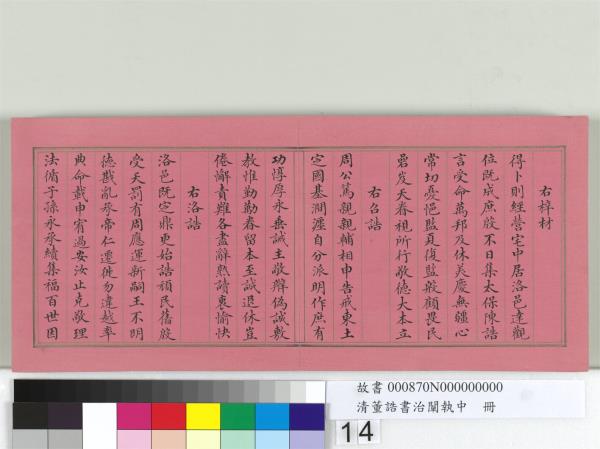 右梓材
得卜則經營宅中居洛邑達觀
位既成庶殷不日集太保陳誥
言受命萬邦及休美慶無疆心
常切憂悒監夏復監殷顧畏民
碞炭天眷視所行敬德大本立
右召誥
周公篤親親輔相申告戒東土
定國基澗瀍自分派明作庶有
功惇厚永無誠主敬辯偽誠敷
教惟勤勤眷留本至誠退休豈
倦懈責難各盡辭熟讀衷愉快
右洛誥
洛邑既定鼎更始誥頑民舊殷
受天罰有周應運新嗣王不明
德戡亂承常仁遷徙勿違越率
典命載申宥過安汝止克敬理
法脩子孫永承續集福百世因
故書 000870N000000000
清董誥書治闡執中 冊
14